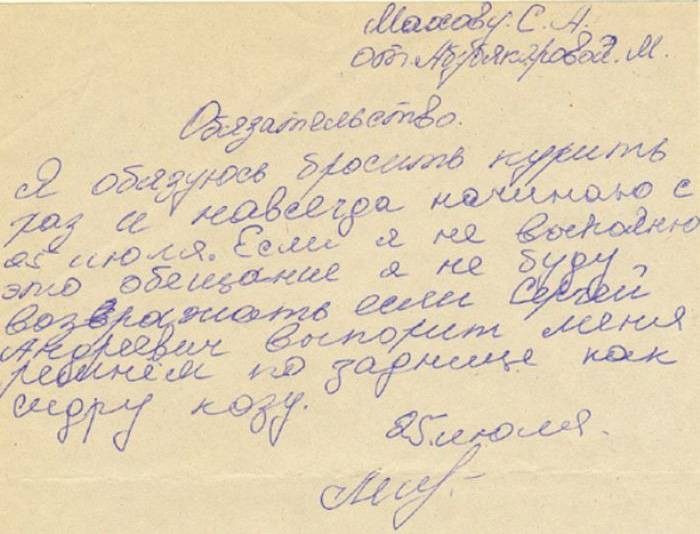 Махову. С. А.
от Абдрякяровой. М.
Обязательство.
Я обязуюсь бросить курить
раз и навсегда начинаю с
25 июля. Если я не выполню
это обещание я не буду
возвражать если Сергей
Андреевич выпорит меня
ремнём по заднице как
сидру козу.
25 июля.